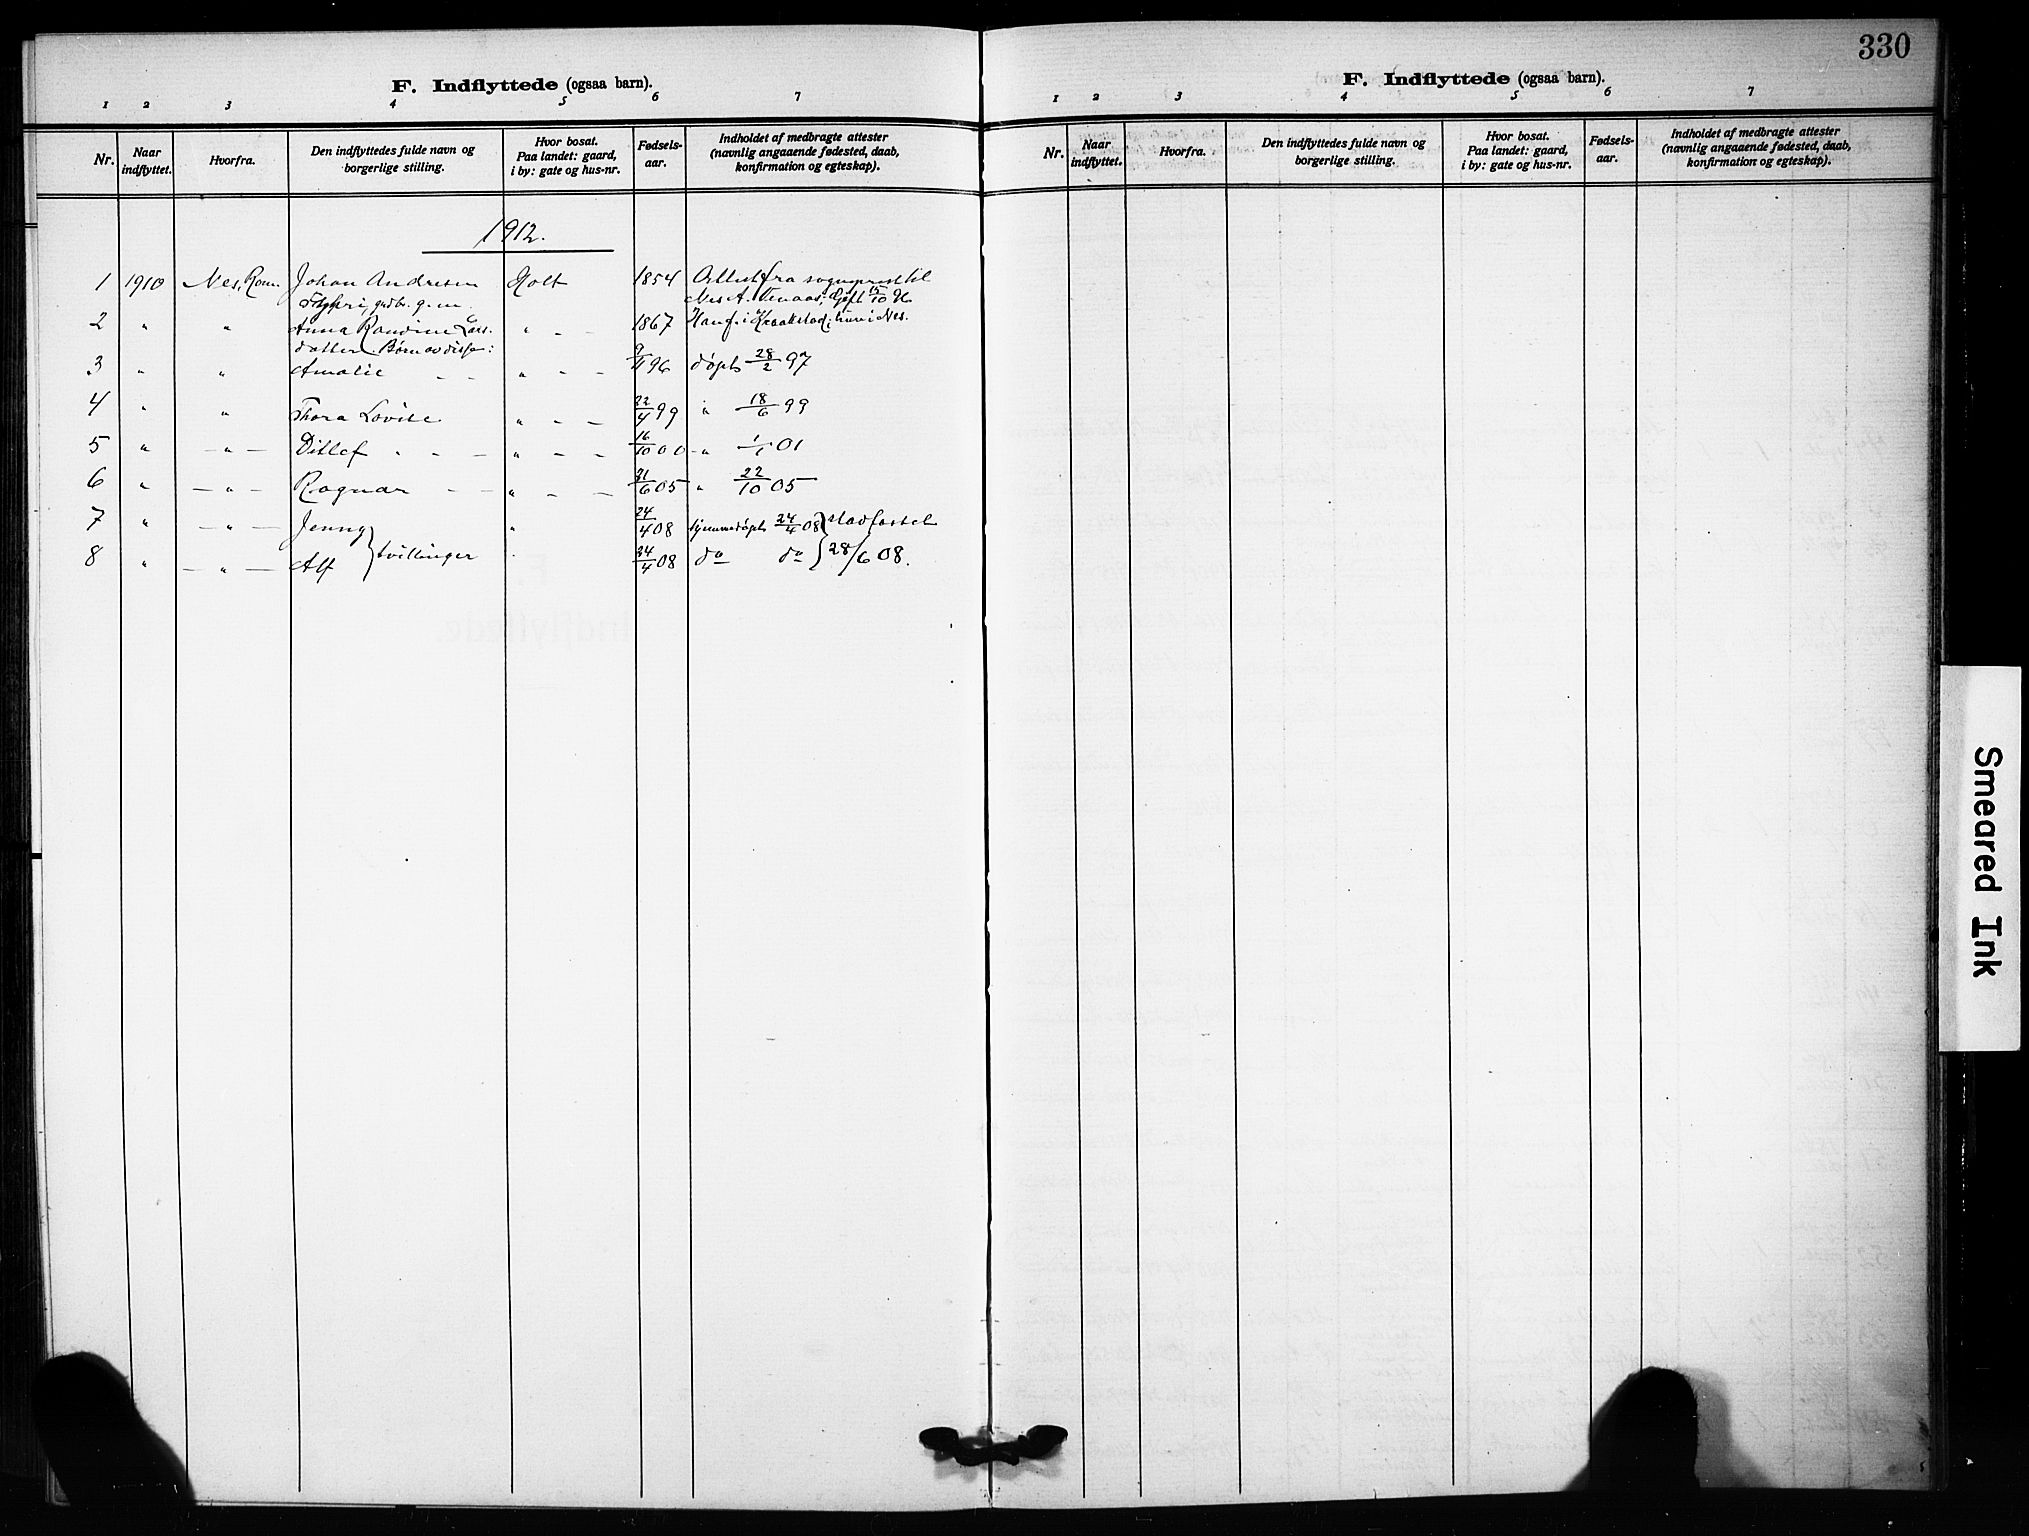 330
F. Indflyttede (ogsaa barn).
1 2 3 4 5 6 7
Nr. Naar indflyttet. Hvorfra. Den indflyttedes fulde navn og borgerlige stilling. Hvor bosat. Paa landet: gaard, i by: gate og hus-nr. Fødsels-aar. Indholdet af medbragte attester (navnlig angaaende fødested, daab, konfirmation og egteskap).
1912.
1 1910 Nes, Rom. Johan Andresen Holt 1854 Attest fra sogneprest til
gidbr. g. m. Nes A. gift 15/10
2 " " Anna Randine Lars- " - - 1867 Han f. i Kraakstad; hun i Nes.
datter. Børn av disse:
3 " " Amalie - - " - - 9/11 96 døpt 28/2 97
4 " " Thora Lovise " - - 22/4 99 " 18/6 99
5 " - " - Ditlef " - - " - - 16/10 00 - " 1/1 01
6 " - " - Ragnar - - " - - 21/6 05 " 22/10 05
7 " - " - Jenny } tvillinger " 24/4 08 hjemmedøpt 24/4 08 } stadfæstet
8 " - " - Alf 24/4 08 do do } 28/6 08.
F. Indflyttede (ogsaa barn).
1 2 3 4 5 6 7
Nr. Naar indflyttet. Hvorfra. Den indflyttedes fulde navn og borgerlige stilling. Hvor bosat. Paa landet: gaard, i by: gate og hus-nr. Fødsels-aar. Indholdet af medbragte attester (navnlig angaaende fødested, daab, konfirmation og egteskap).
Smeared Ink